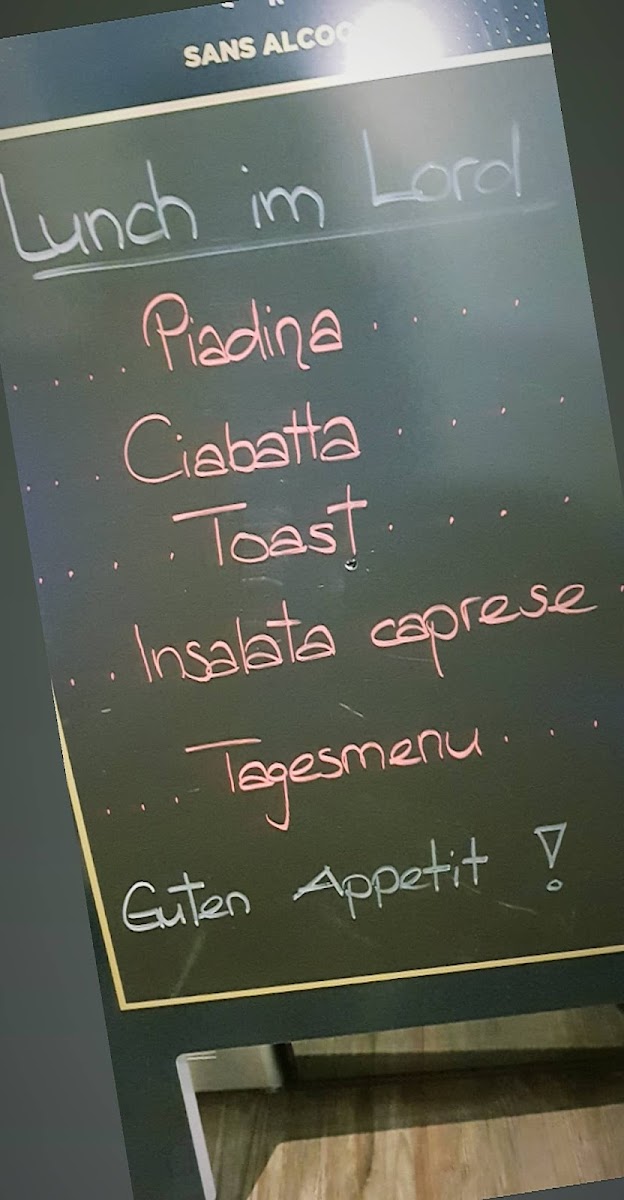 SANS ALCOO
Lunch im Lord
.... Piadina ....
... Ciabatta ....
.... Toast ....
.. Insalata caprese .
... Tagesmenu ...
Guten Appetit !